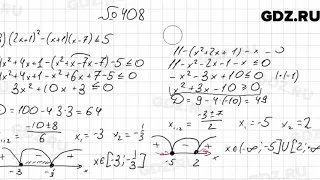 № 408
GDZ.RU
) (2x+1)²-(x+1)(x-7)≤5
4x²+4x+1-(x²+x-7x-7)≤5
4x²+4x+1-x²+6x+7-5≤0
3x²+10x+3≤0
D=100-4·3·3=64
-10±8
6
x₁=-3 x₂=-1/3
-3 -1/3
x∈[-3;-1/3]
11-(x²+2x+1)-x
11-x²-2x-1-x≤0
-x²-3x+10≤0 (·(-1)
x²+3x-10≥0
D=9-4·(-10)=49
x₁,₂=-3±7
2
x₁=-5 x₂=2
-5 2
x∈(-∞;-5]U[2;
GDZ.RU